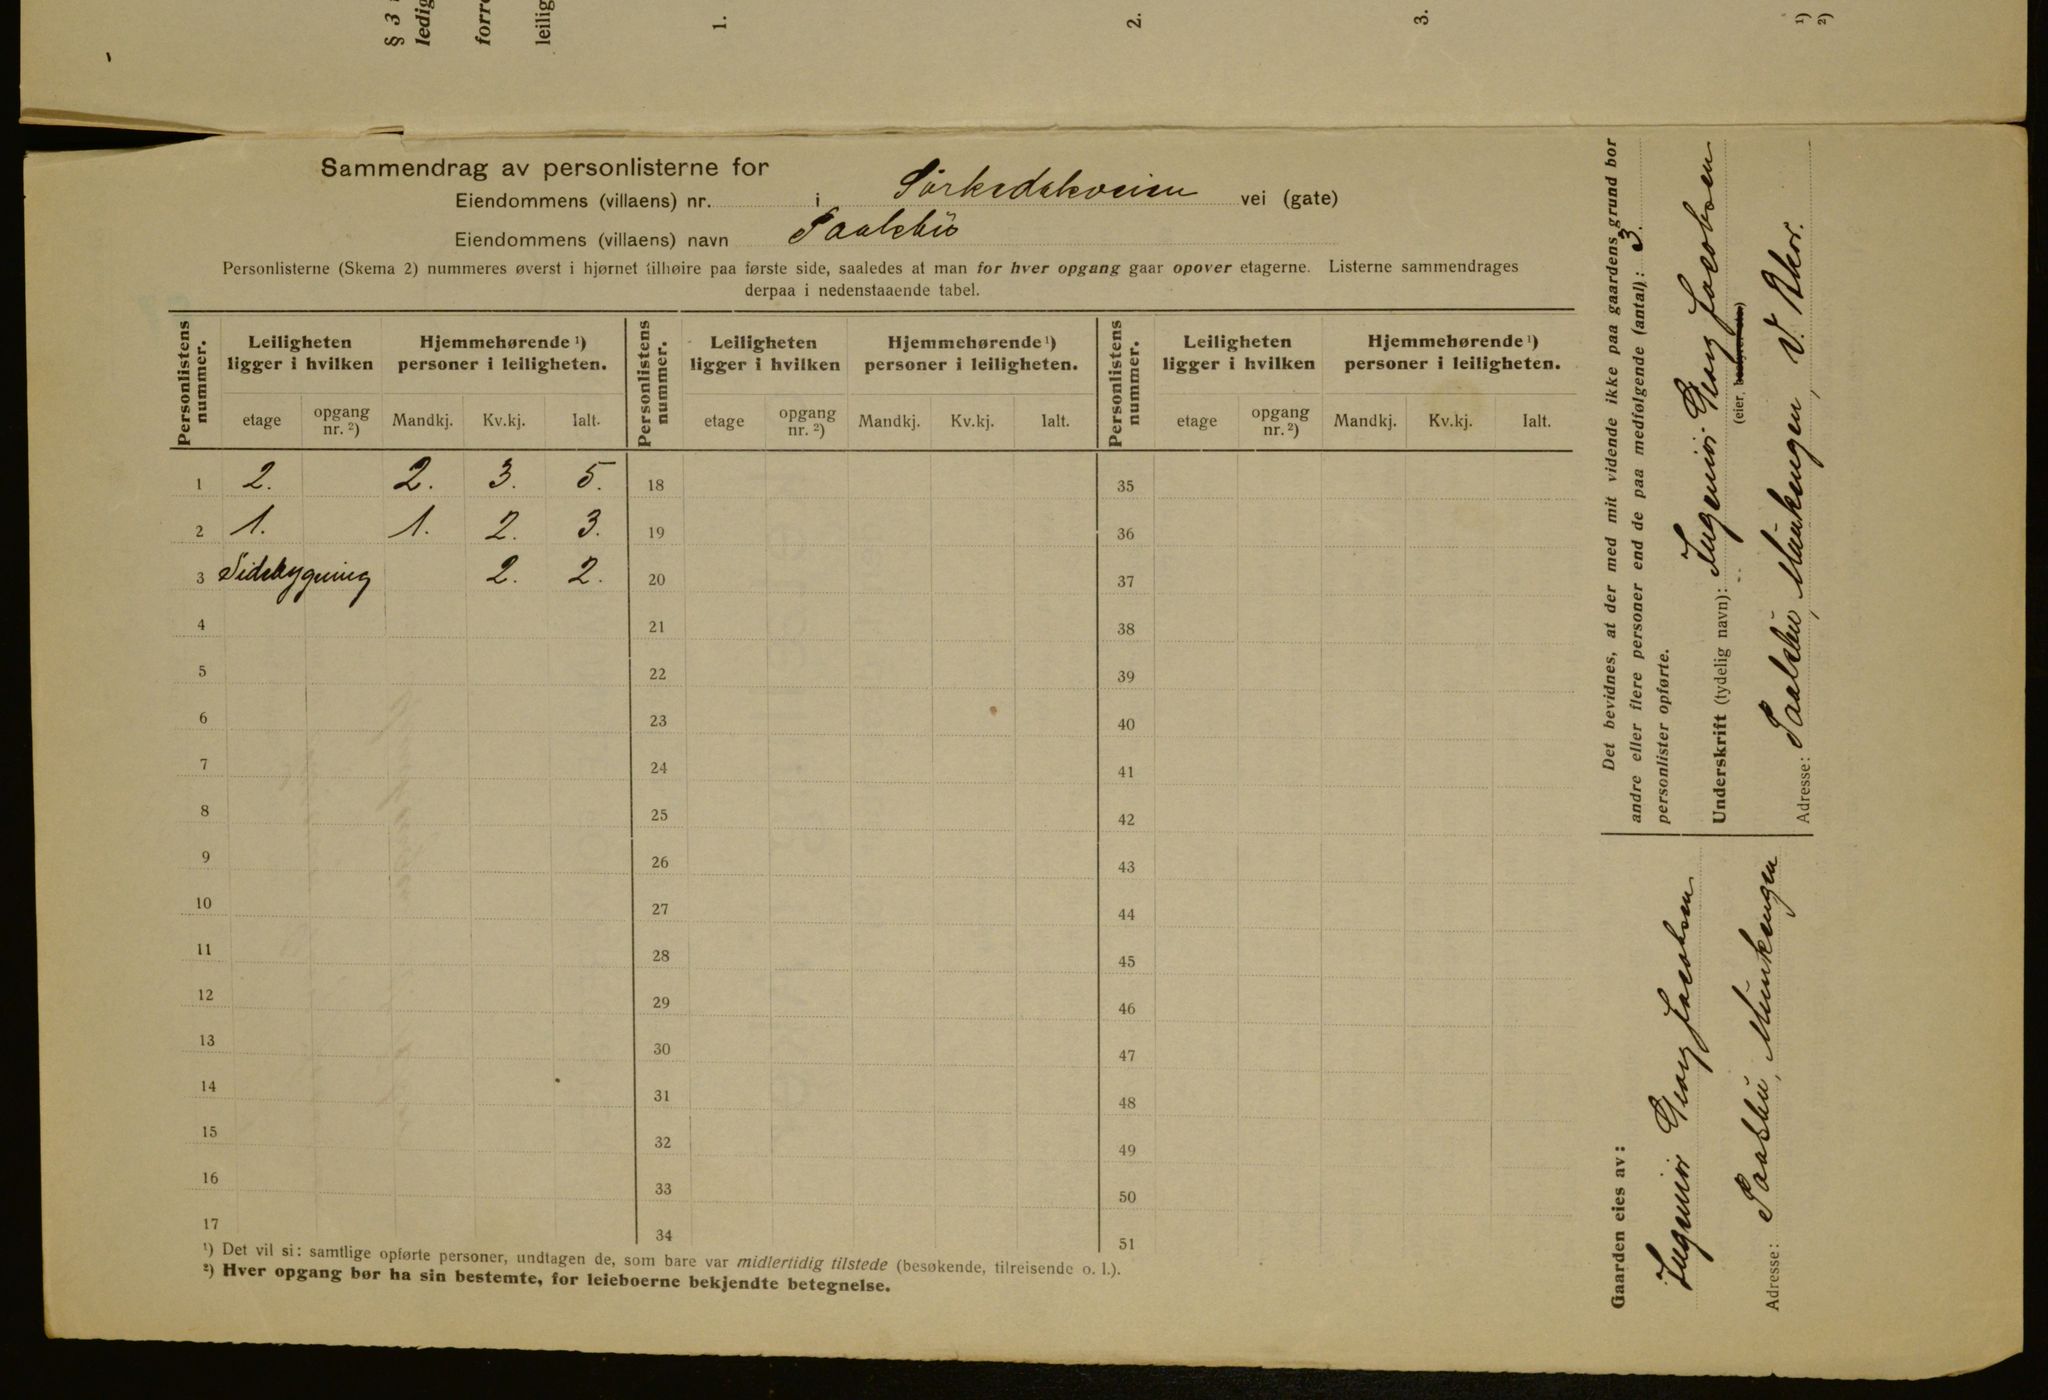 § 3
ledig
forre
leilig
1.
2.
3.
¹)
²)
Sammendrag av personlisterne for
Eiendommens (villaens) nr. i Sörkedalsveien vei (gate)
Eiendommens (villaens) navn Paalsbü
Personlisterne (Skema 2) nummeres øverst i hjørnet tilhøire paa første side, saaledes at man for hver opgang gaar opover etagerne. Listerne sammendrages
derpaa i nedenstaaende tabel.
Personlistens nummer. Leiligheten ligger i hvilken Hjemmehørende ¹) personer i leiligheten. Personlistens nummer. Leiligheten ligger i hvilken Hjemmehørende ¹) personer i leiligheten. Personlistens nummer. Leiligheten ligger i hvilken Hjemmehørende ¹) personer i leiligheten.
etage opgang nr. ²) Mandkj. Kv.kj. Ialt. etage opgang nr. ²) Mandkj. Kv.kj. Ialt. etage opgang nr. ²) Mandkj. Kv.kj. Ialt.
1 2. 2. 3. 5. 18 35
2 1. 1. 2. 3. 19 36
3 Sidebygning 2. 2. 20 37
4 21 38
5 22 39
6 23 40
7 24 41
8 25 42
9 26 43
10 27 44
11 28 45
12 29 46
13 30 47
14 31 48
15 32 49
16 33 50
17 34 51
¹) Det vil si: samtlige opførte personer, undtagen de, som bare var midlertidig tilstede (besøkende, tilreisende o. l.).
²) Hver opgang bør ha sin bestemte, for leieboerne bekjendte betegnelse.
Det bevidnes, at der med mit vidende ikke paa gaardens grund bor
andre eller flere personer end de paa medfølgende (antal): 3.
personlister opførte.
Underskrift (tydelig navn): Ingeniör Georg Jacobsen
(eier, bestyrer etc.)
Adresse: Paalsbü, Munkengen, V. Aker.
Gaarden eies av:
Ingeniör Georg Jacobsen
Adresse: Paalsbü, Munkengen